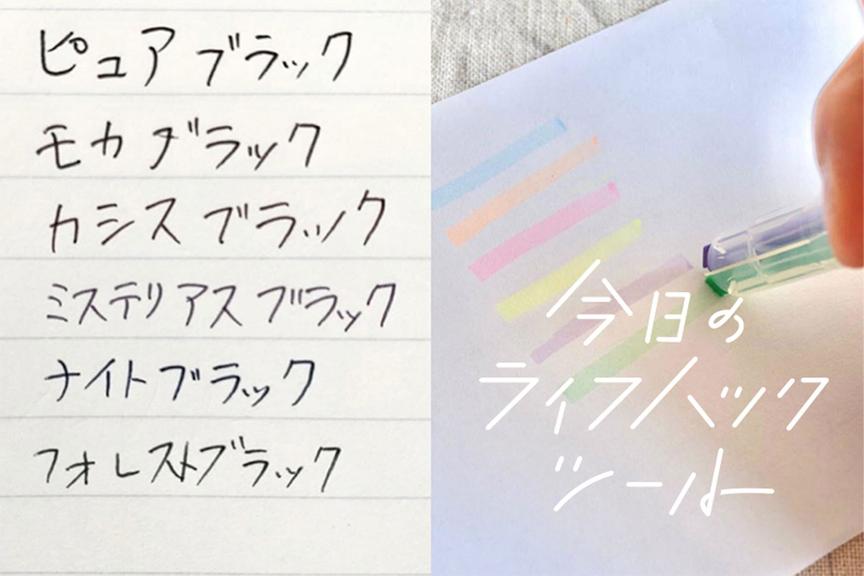 ピュアブラック
モカブラック
カシスブラック
ミステリアスブラック
ナイトブラック
フォレストブラック
今日の
ライフハック
ツール